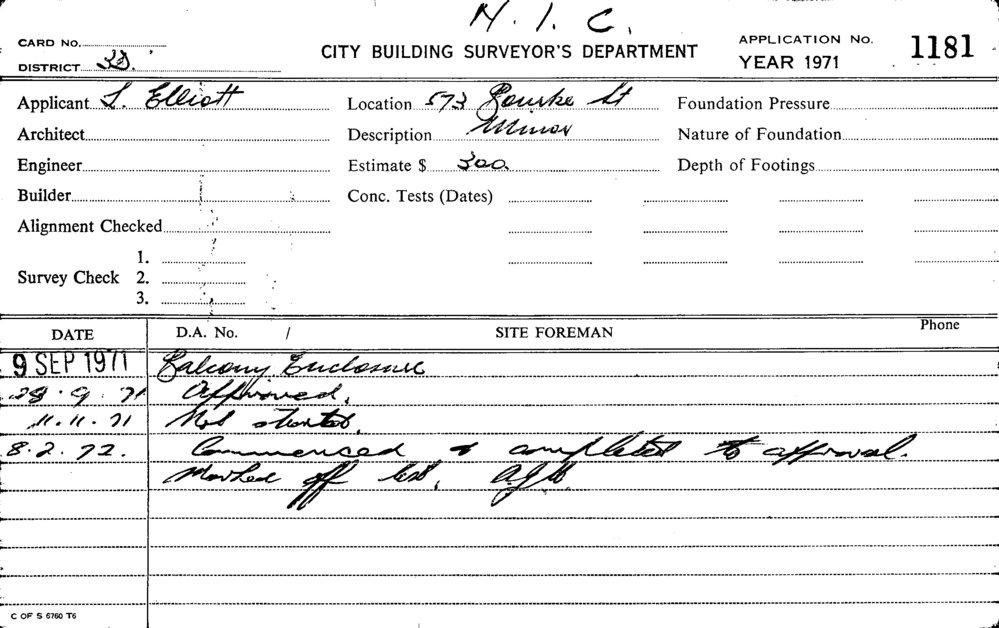 N. I. C.
CARD No.
CITY BUILDING SURVEYOR'S DEPARTMENT
APPLICATION No. 1181
DISTRICT
YEAR 1971
Applicant L. Elliott Location 573 Bourke St Foundation Pressure
Architect Description Minor Nature of Foundation
Engineer Estimate $ 300. Depth of Footings
Builder Conc. Tests (Dates)
Alignment Checked
1.
Survey Check 2.
3.
DATE D.A. No. / SITE FOREMAN Phone
9 SEP 1971 Balcony Enclosure
28.9.71 Approved.
11.11.71 Not started.
8.2.72. Commenced & completed to approval.
Marked off list.
C OF S 6760 T6